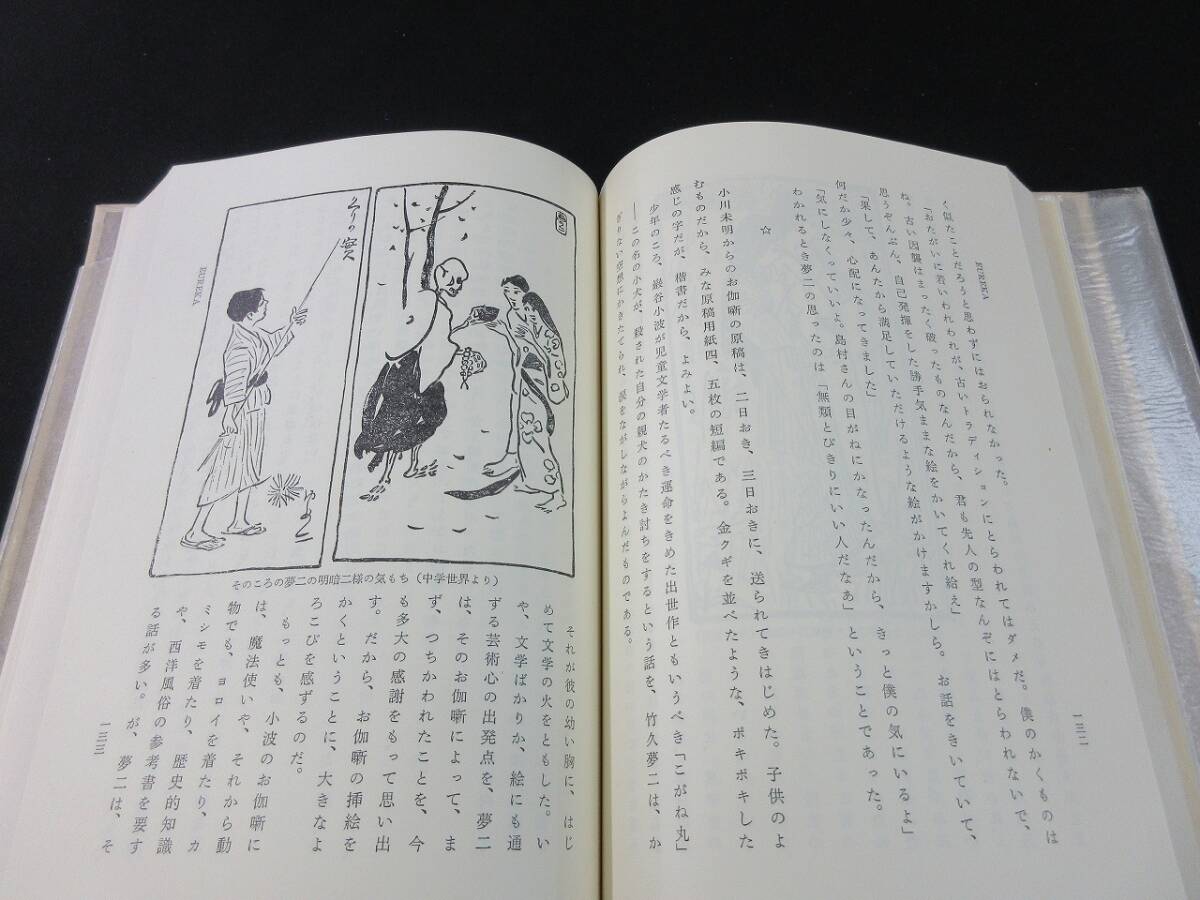 EUREKA
く似たことだろうと思わずにはおられなかった。
「おたがいに若いわれわれが、古いトラディションにとらわれてはダメだ。僕のかくものは
ね。古い因襲はまったく破ったものなんだから、君も先人の型なんぞにはとらわれないで、
思うぞんぶん、自己発揮をした勝手気ままな絵をかいてくれ給え」
「果して、あんたから満足していただけるような絵がかけますかしら。お話をきいていて、
何だか少々、心配になってきました」
「気にしなくっていいよ。島村さんの目がねにかなったんだから、きっと僕の気にいるよ」
わかれるとき夢二の思ったのは「無類とびきりにいい人だなあ」ということであった。
☆
小川未明からのお伽噺の原稿は、二日おき、三日おきに、送られてきはじめた。子供のよ
むものだから、みな原稿用紙四、五枚の短編である。金クギを並べたような、ポキポキした
感じの字だが、楷書だから、よみよい。
少年のころ、巌谷小波が児童文学者たるべき運命をきめた出世作ともいうべき「こがね丸」
――この名の小犬が、殺された自分の親犬のかたき討ちをするという話を、竹久夢二は、か
ぎりない空想にかきたてられ、涙をながしながらよんだものである。
一三二
EUREKA
そのころの夢二の明暗二様の気もち（中学世界より）
それが彼の幼い胸に、はじ
めて文学の火をともした。い
や、文学ばかりか、絵にも通
ずる芸術心の出発点を、夢二
は、そのお伽噺によって、ま
ず、つちかわれたことを、今
も多大の感謝をもって思い出
す。だから、お伽噺の挿絵を
かくということに、大きなよ
ろこびを感ずるのだ。
もっとも、小波のお伽噺に
は、魔法使いや、それから動
物でも、ヨロイを着たり、カ
ミシモを着たり、歴史的知識
や、西洋風俗の参考書を要す
る話が多い。が、夢二は、そ
一三三